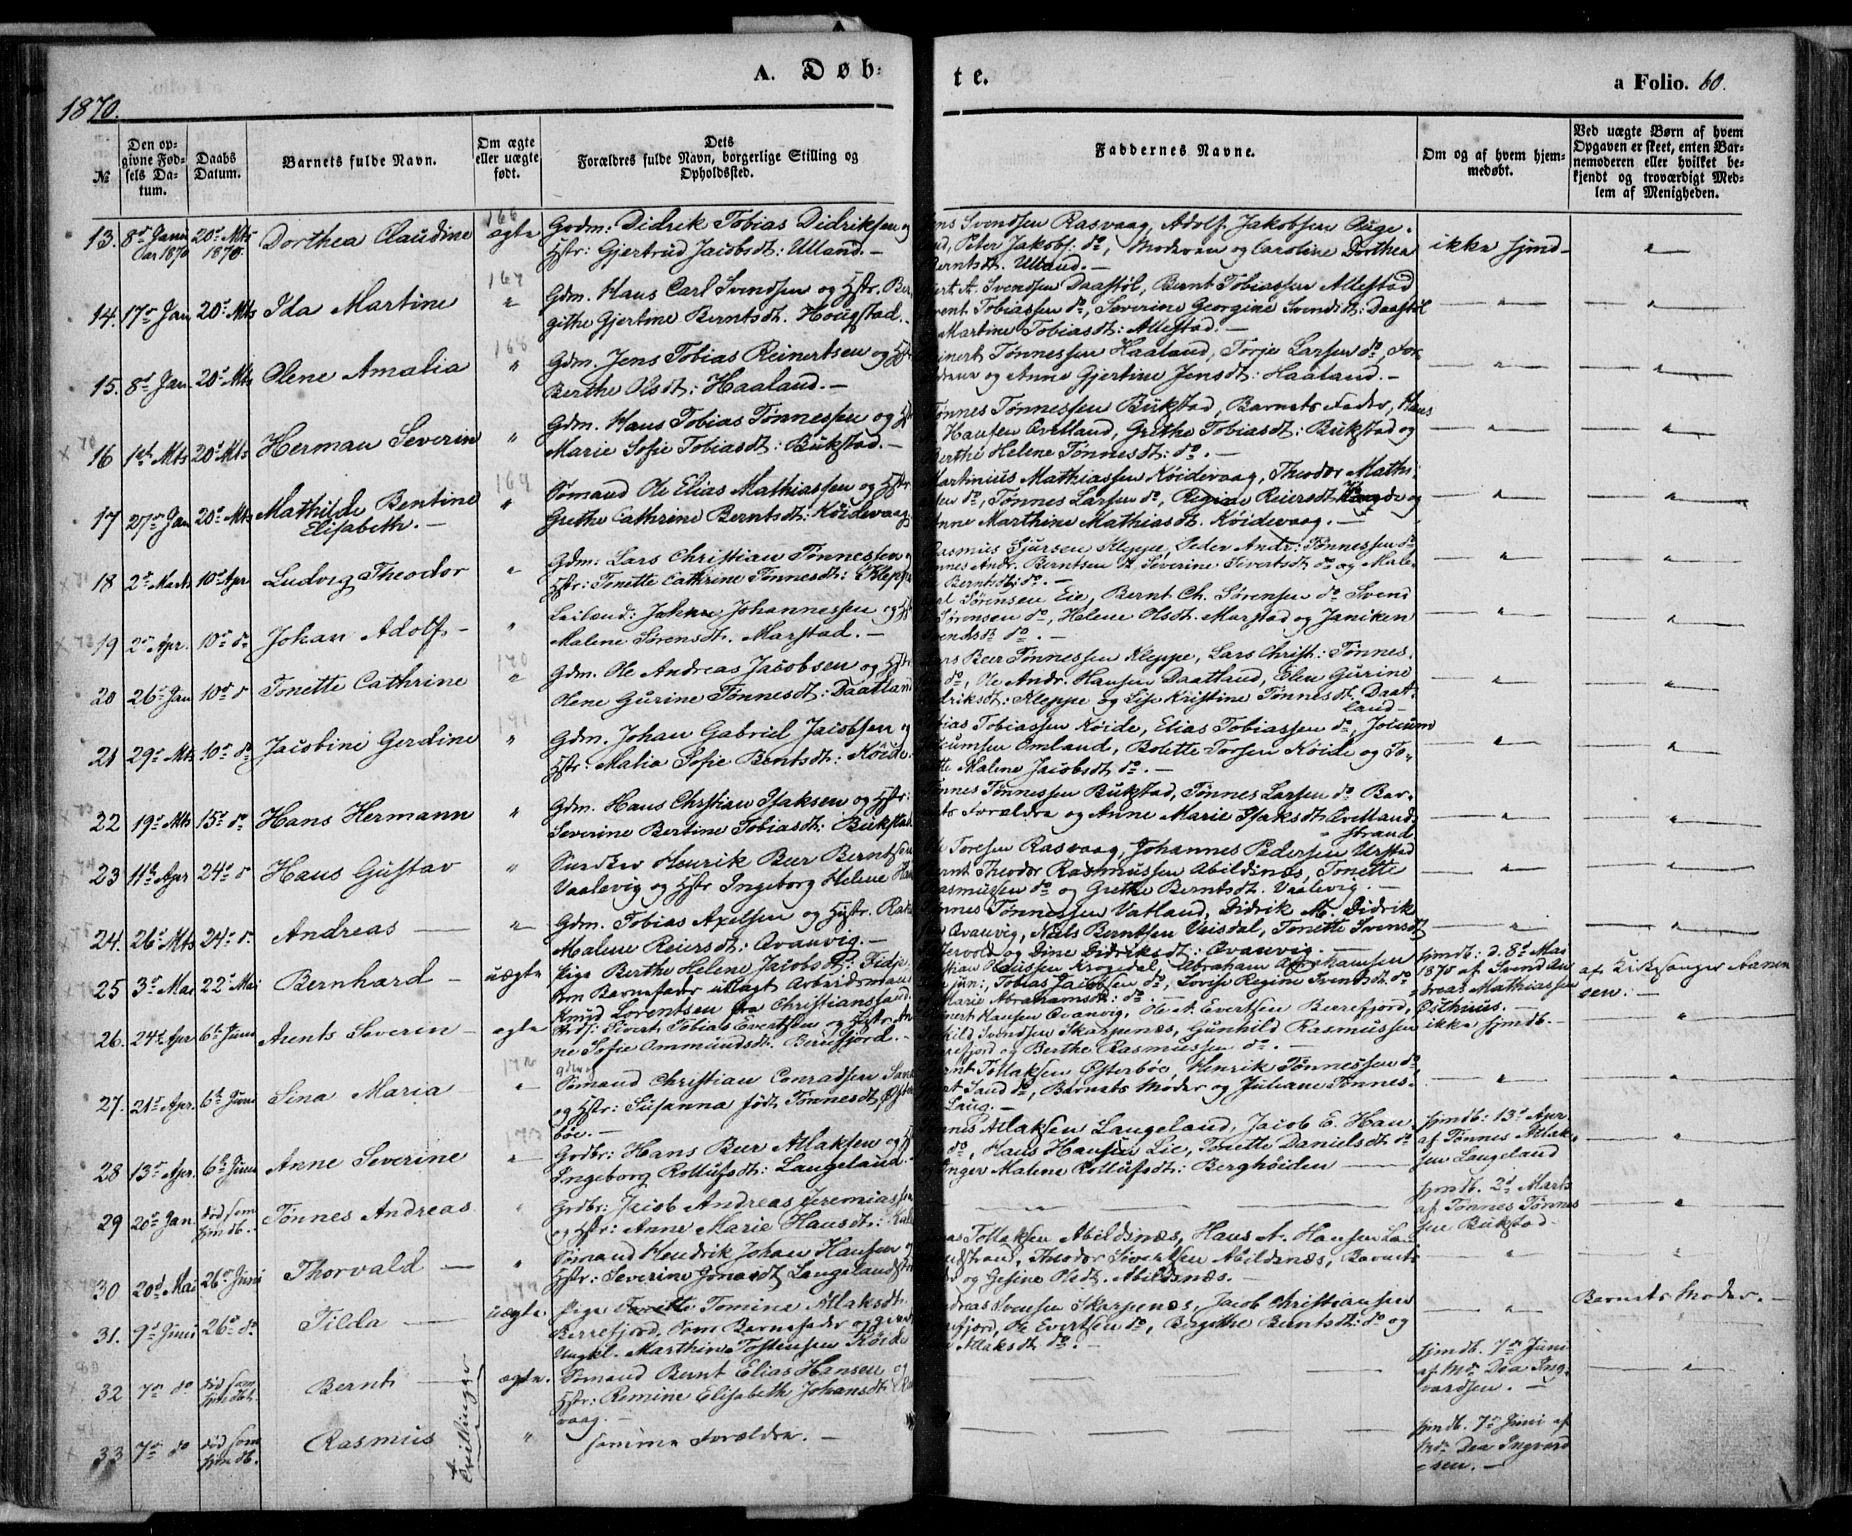 A. Døb-
te.
a Folio. 60.
1870.
№
Den opgivne Fødsels Datum.
Daabs Datum.
Barnets fulde Navn.
Om ægte eller uægte født.
Dets Forældres fulde Navn, borgerlige Stilling og Opholdssted.
Faddernes Navne.
Om og af hvem hjemmedøbt.
Ved uægte Børn af hvem Opgaven er skeet, enten Barnemoderen eller hvilket bekjendt og troværdigt Medlem af Menigheden.
166
13. 8de Januar 1870 20de Mts 1870. Dorthea Claudine ægte
Gdm: Didrik Tobias Didriksen og
Hstr: Gjertrud Jacobsdt: Ulland.-
Svendsen Rasvaag, Adolf Jakobsen
Peter Jakobs: do, Moderen og Caroline Dorthea
Berntsdt. Ulland.-
ikke hjmd- "
167
14. 17de Jan 20de Mts Ida Martine "
Gdm. Hans Carl Svendsen og Hstr. Ber-
githe Gjertine Berntsdt. Hougstad.
A. Svendsen Daastöl, Bernt Tobiassen Allestad
Tobiassen do, Severine Georgine Svendsdt: Daastöl
Martine Tobiasdt: Allestad.-
" "
168
15. 8de Jan 20de Mts Olene Amalia "
Gdm. Jens Tobias Reinertsen og Hstr
Berthe Olsdt: Haaland.-
Tønnessen Haaland, Torje Larsen do, For-
og Anne Gjertine Jensdt: Haaland.-
" "
16 1ste Mts 20de Mts Herman Severin "
Gdm. Hans Tobias Tønnessen og
Marie Sofie Tobiasdt: Bukstad.-
Tønnes Tønnessen Bukstad, Barnets Fader, Hans
Hansen Qvelland, Grethe Tobiasdt: Bukstad og
Berthe Helene Tønnesdt: do.-
" "
169
17 27de Jan 20de Mts Mathilde Bentine Elisabeth.- "
Sømand Ole Elias Mathiassen og Hstr
Grethe Cathrine Berntsdt: Köidevaag
Martinius Mathiassen Köidevaag, Theodor Maths:
do, Tønnes Larsen do, Regine Reiersdt og
Anne Marthine Mathiasdt. Köidevaag.-
" "
18 2de Marts 10de Apr Ludvig Theodor "
Gdm: Lars Christian Tønnessen og
Hstr: Tonette Cathrine Tønnesdt: Kleppe
Rasmus Sjursen Kleppe, Peder Andr: Tønnessen do
Andr. Berntsen Severine Sivertsdt do og Male-
Berntsdt: do.-
" "
19 2de Apr. 10de do Johan Adolf- "
Leilænd: Johan Johannessen og
Malene Sørensdt. Marstad.-
Sørensen Eie, Bernt Ch. Sørensen do Svend
Sørensen do, Helene Olsdt. Marstad og Janiken
Svendsdt do.-
" "
170
20 26de Jan 10de d Tonette Cathrine "
Gdm. Ole Andreas Jacobsen og Hstr
Olene Gurine Tønnesdt: Daatland
Beer Tønnessen Kleppe, Lars Christ: Tønnes-
do, Ole Andr. Hansen Daatland, Elen Gurine
driksdt: Kleppe og Lise Kristine Tønnesdt. Daat-
land-
" "
171
21 29de Mts 10de do Jacobine Gerdine "
Gdm. Johan Gabriel Jacobsen og
Hstr: Malia Sofie Berntsdt: Köide
Tobias Tobiassen Köide, Elias Tobiassen do, Jocum
Jocumsen Omland, Bolette Torsen Köide og To-
Malene Jacobsdt do.-
" "
22 19de Mts 15de do Hans Hermann "
Gdm. Hans Christian Isaksen og Hstr:
Severine Bertine Tobiasdt: Bukstad
Tønnes Tønnessen Bukstad, Tønnes Larsen do Bar-
Forældre og Anne Marie Isaksdt Qvelland-
strand
" "
23 11te Apr 24de d Hans Gustav "
Henrik Beer Berntsen
Vaalevig og Hstr Ingeborg Helene
Toresen Rasvaag, Johannes Pedersen Urstad
Bernt Theodor Rasmussen Abildsnæs, Tonette
Rasmussen do og Grethe Berntsdt. Vaalevig.-
" "
24. 26de Mts 24de d. Andreas "
Gdm. Tobias Axelsen og Hstr.
Malene Reiersdt: Qvanvig.-
Tønnes Tønnessen Vatland, Didrik M. Didrik
Qvanvig, Niels Berntsen Veisdal, Tonette Svensdt
og Dine Didriksdt: Qvanvig.-
" "
25 3de Mai 22de Mai Bernhard- uægte
Pige Berthe Helene Jacobsdt: Fidje
Som Barnefader utlagt Arbeidsmand
Knud Lorentsen fra Christianssand.
Hanssen Krogedal, Abraham Abrahamsen
jun:, Tobias Jacobsen do, Lovise Regine Svendsdt do
Marie Abrahamsdt: do.-
hjmdb: d. 8de Mai
1870 af Svend An-
dreas Mathiassen
Osthuus.
af Kirkesanger Aanen-
sen.-
26. 24de Apr 6te Juni Arents Severin- ægte
Sivert Tobias Evertsen og Hstr. An-
ne Sofie Ommundsdt. Berrefjord.-
Hansen Qvanvig, Ole A. Evertsen Berrefjord,
Svendsen Skarpenæs, Gunhild Rasmussen
og Berthe Rasmussen do.-
ikke hjmdb.- "
172
27. 21de Apr. 6te Juni Sina Maria "
Sømand Christian Conradsen
og Hstr: Susanna födt Tønnesdt
böe.-
Tollaksen Østerböe, Henrik Tønnessen do
Sand do, Barnets Moder og Juliane Tønnes-
Laug.-
" "
173
28 13de Apr. 6te Juni Anne Severine "
Grdbr: Hans Beer Atlaksen og
Ingeborg Rollufsdt: Langeland.
Atlaksen Langeland, Jacob E. Han
do, Hans Hansen Lie, Tonette Danielsdt do
Inger Malene Rollufsdt: Berghöiden
hjmdb: 13de Apr.
af Tønnes Atlak-
sen Langeland
"
29 20de Jan. död som hjmdb. Tønnes Andreas "
Grdbr: Jacob Andreas Jeremiassen
og Hstr: Anne Marie Hansdt:
hjmdb. 2d Marts
af Tønnes Tønnes
sen Bukstad-
"
30 20de Mai 26de Juni Thorvald- "
Sømand Hendrik Johan Hansen og
Hstr: Severine Jonasdt Langelandstr
Tollaksen Abildsnæs, Hans A. Hansen La-
Theodor Sivertsen Abildsnæs, Barnets
og Gesine Olsdt. Abildsnæs.-
" "
174
31. 9de Juni 26de do Tilda- uægte.
Pige Tomine Atlaksdt.
Berrefjord. Som Barnefader opgivet
Ungkl. Marthin Tostensen Köide
Svensen Skarpenæs, Jacob Christiansen
Ole Evertsen do, Birgithe Berntsdt: do og
Atlaksdt do.-
"
Barnets Moder.-
32 7de do död som hjmdbt. Bernt ægte.
Sømand Bernt Elias Hansen og
Hstr: Remine Elisabeth Johansdt:
vaag.-
hjmdb. 7de Juni
af Md. Dea Ing-
vardsen.-
"
Tvillinger
33 7de do död som hjmdb. Rasmus "
samme Forældre.-
hjmdb. 7de Juni af
Md. Dea Ingvard
sen.-